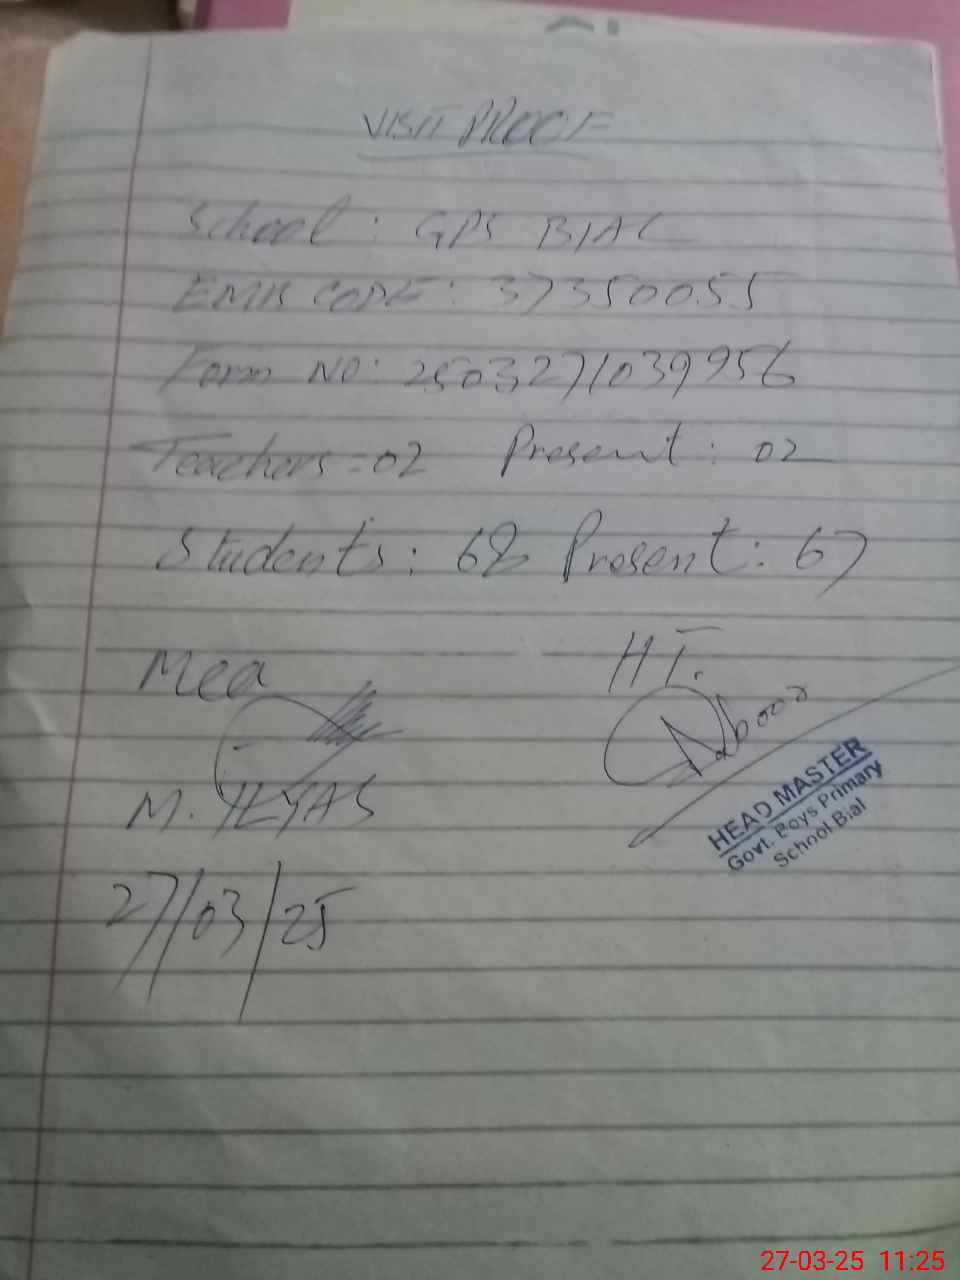 VISIT PROOF
School: GPS BIAL
EMIS CODE: 37350055
Form NO: 2503271039956
Teachers = 02 Present: 02
Students: 68 Present: 67
Mea HT.
M. ILYAS
HEAD MASTER
Govt. Boys Primary
School Bial
27/03/25
27-03-25 11:25